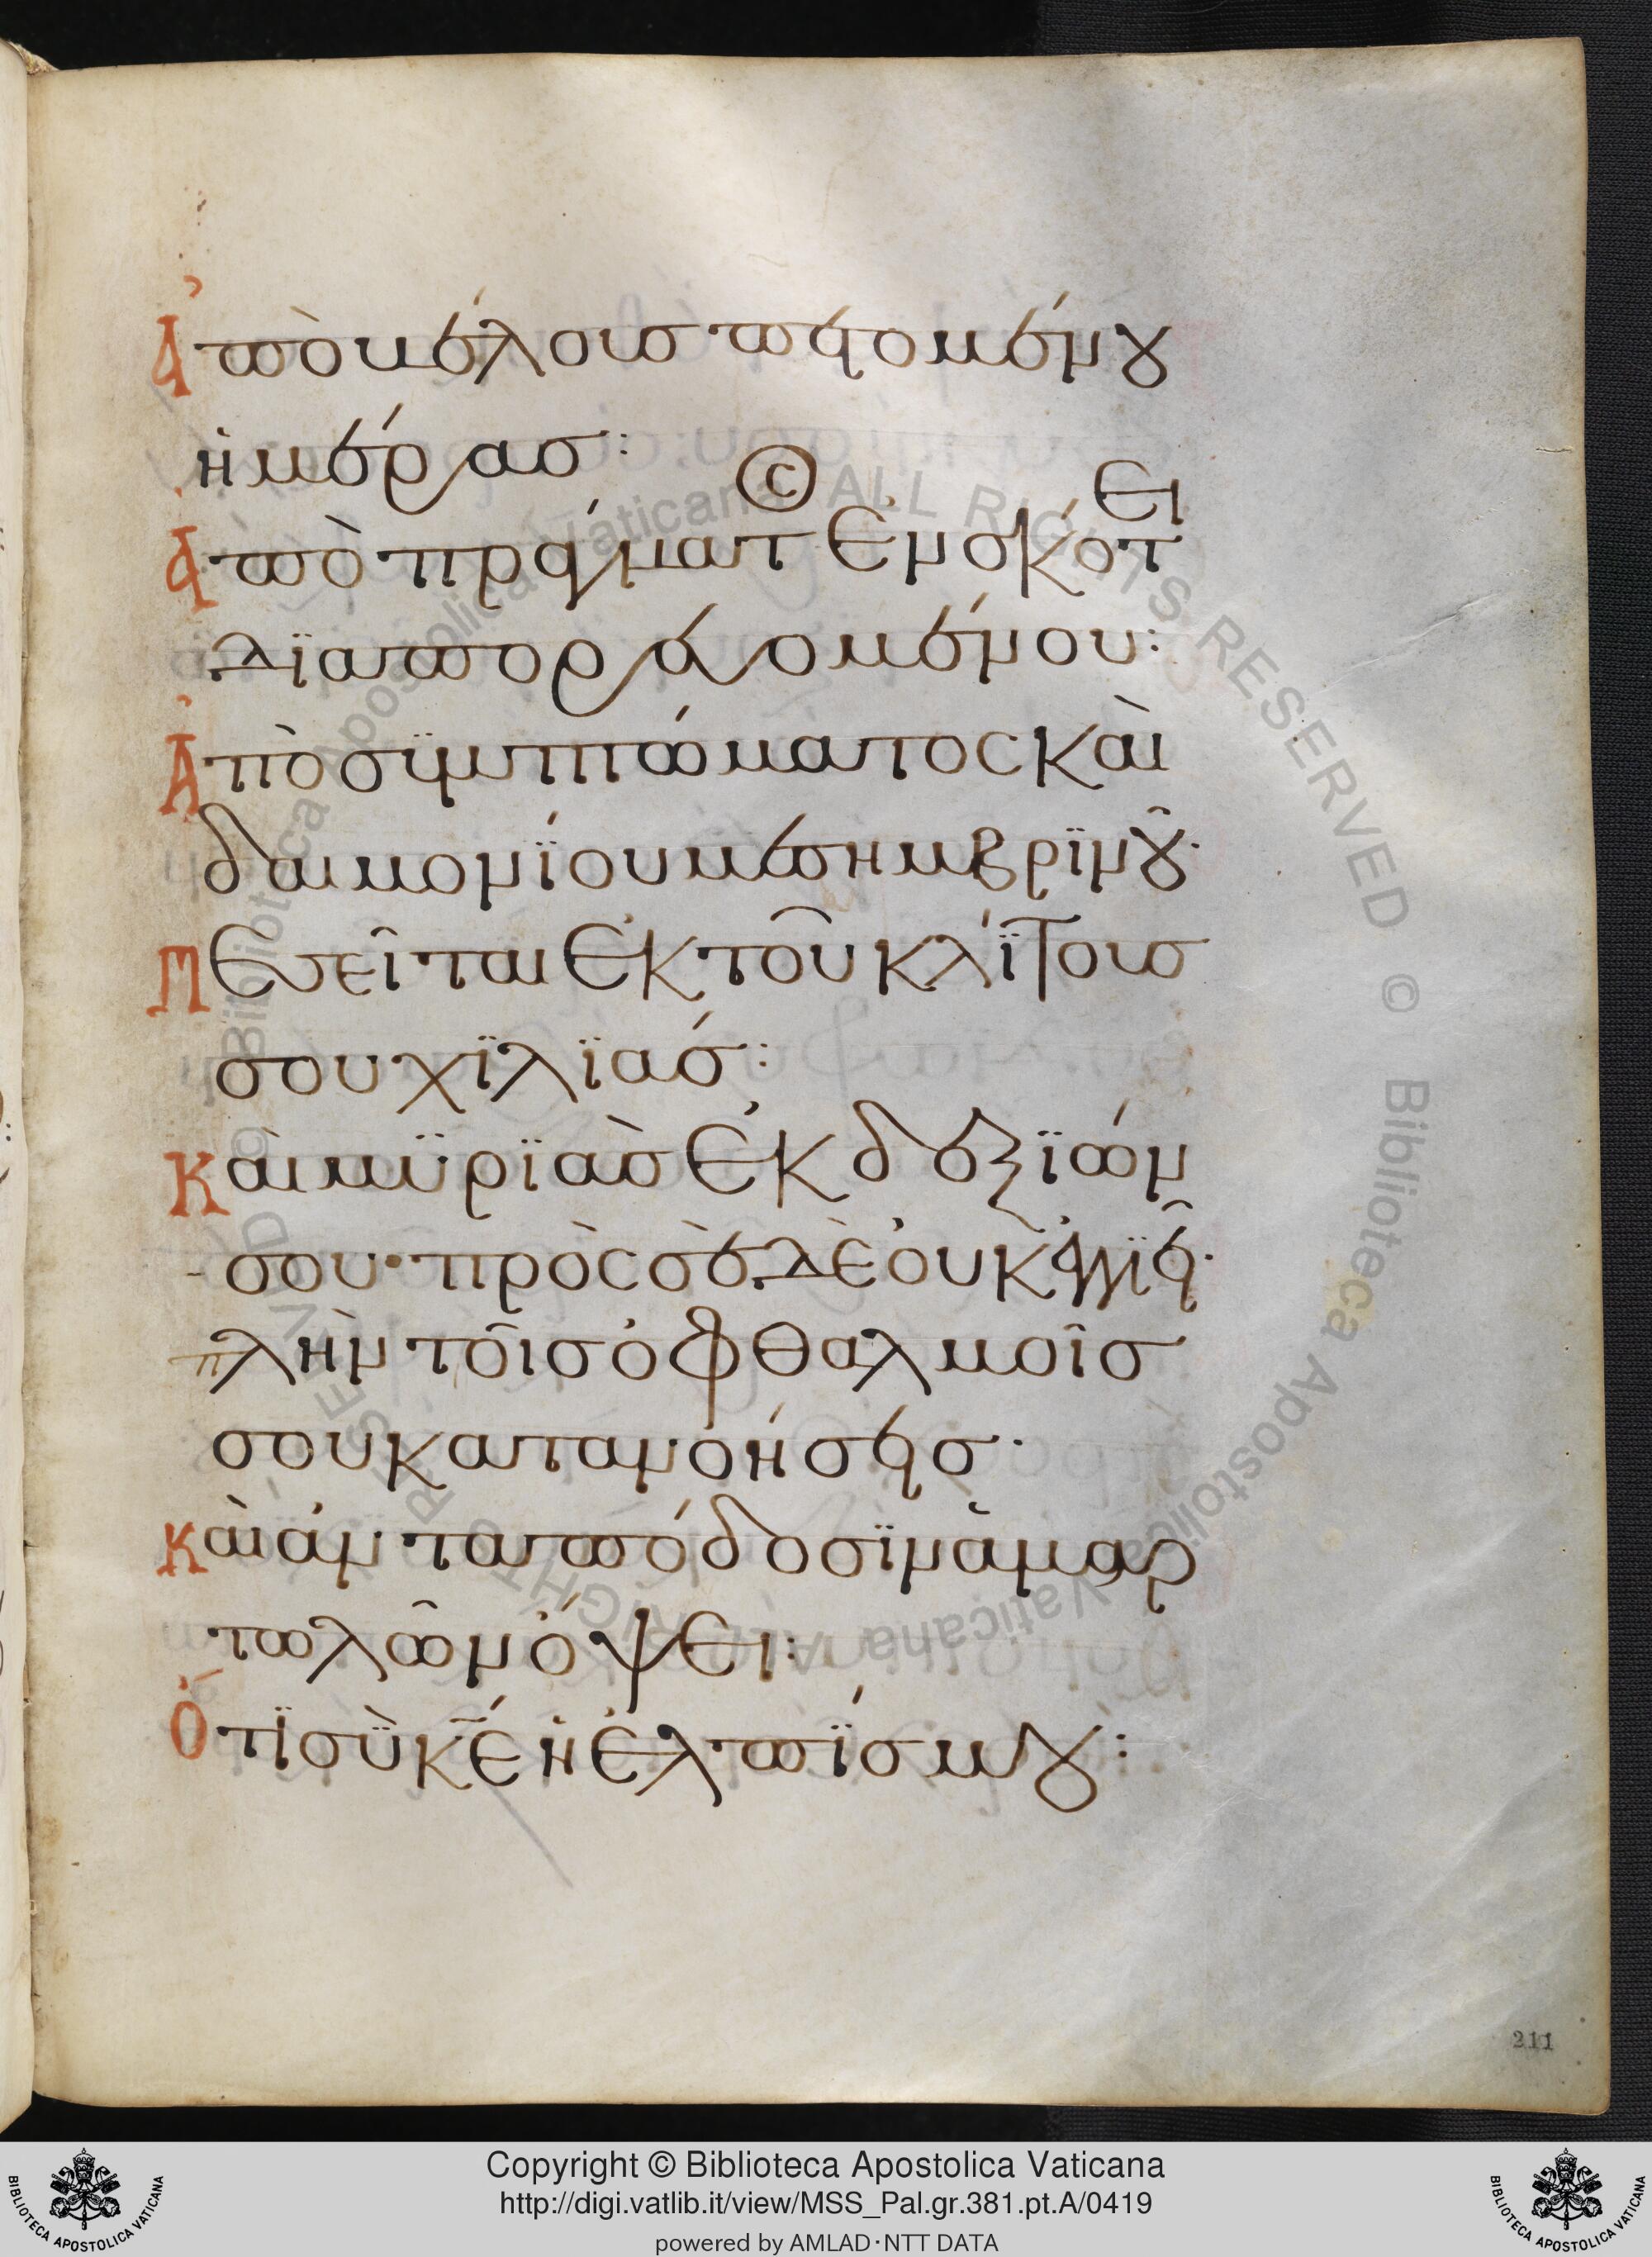 Ἀπὸ βέλους πετομένου
ἡμέρας:
Ἀπὸ πράγματ ἐν σκότει
διαπορευομένου:
Ἀπὸ συμπτώματος καὶ
δαιμονίου μεσημβρινοῦ·
Πεσεῖται ἐκ τοῦ κλίτους
σου χιλιάς:
Καὶ μυριὰς ἐκ δεξιῶν
σου· πρὸς σὲ δὲ οὐκ ἐγγιεῖ·
πλὴν τοῖς ὀφθαλμοῖς
σου κατανοήσεις·
καὶ ἀνταπόδοσιν ἁμαρ
τωλῶν ὄψει:
Ὅτι σὺ κε ἡ ἐλπίς μου:
211
© Biblioteca Apostolica Vaticana ALL RIGHTS RESERVED © Biblioteca Apostolica Vaticana ALL RIGHTS RESERVED
Copyright © Biblioteca Apostolica Vaticana
http://digi.vatlib.it/view/MSS_Pal.gr.381.pt.A/0419
powered by AMLAD·NTT DATA
BIBLIOTECA APOSTOLICA VATICANA
BIBLIOTECA APOSTOLICA VATICANA